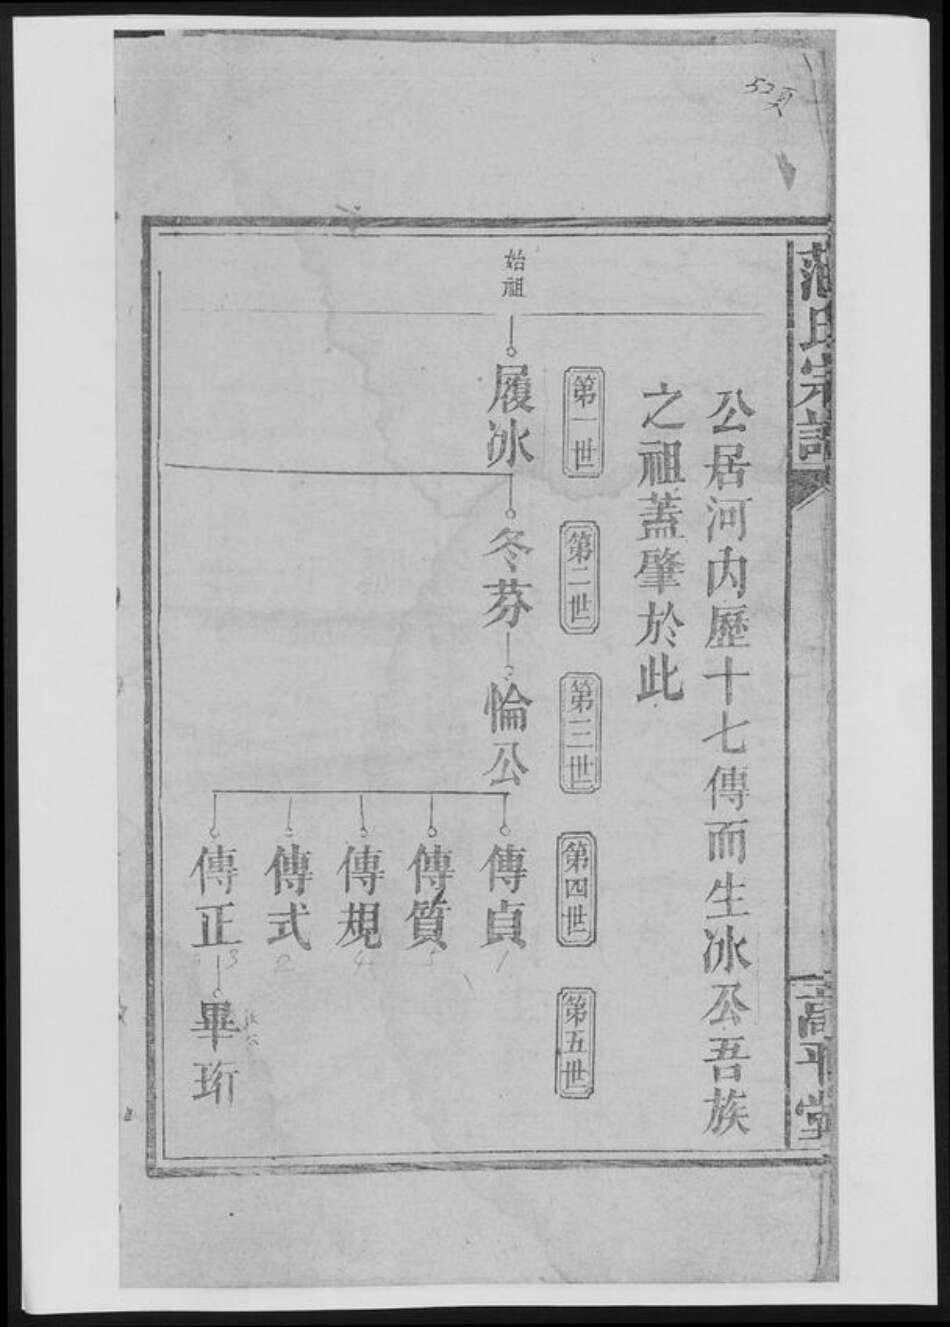 52頁
范氏宗譜
高平堂
公居河内歷十七傳而生冰公吾族
之祖蓋肇於此
第一世
第二世
第三世
第四世
第五世
始祖
履冰
冬芬
愉公
傳貞
1
傳質
5
傳規
4
傳式
2
傳正
3
畢珩